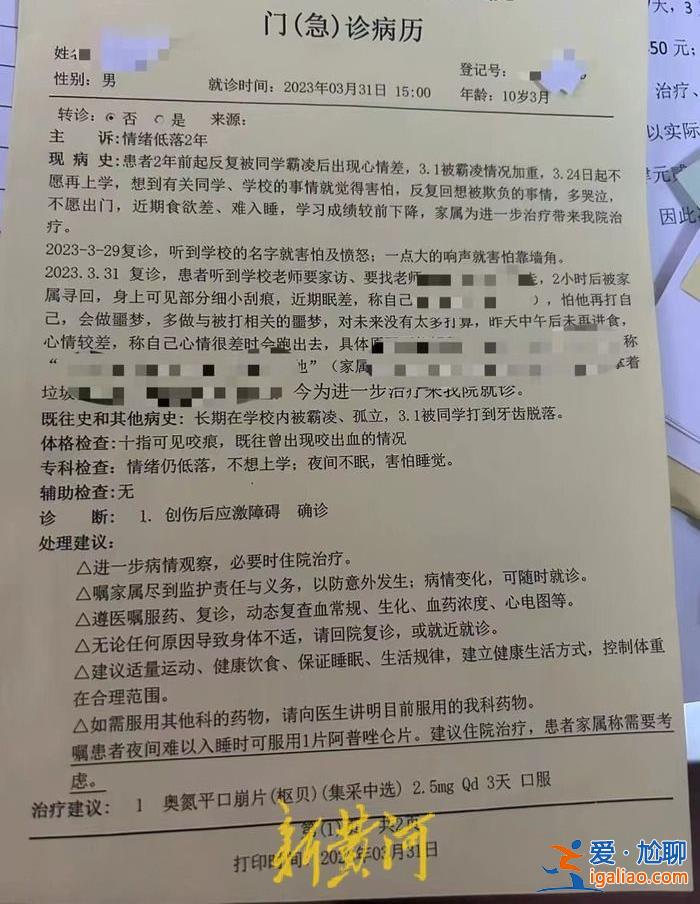 门(急)诊病历
姓名
登记号:
性别: 男
就诊时间: 2023年03月31日 15:00
年龄: 10岁3月
转诊: 否 是 来源:
主 诉:情绪低落2年
现 病 史:患者2年前起反复被同学霸凌后出现心情差, 3.1被霸凌情况加重, 3.24日起不
愿再上学, 想到有关同学、学校的事情就觉得害怕, 反复回想被欺负的事情, 多哭泣,
不愿出门, 近期食欲差、难入睡, 学习成绩较前下降, 家属为进一步治疗带来我院治
疗。
2023-3-29复诊, 听到学校的名字就害怕及愤怒; 一点大的响声就害怕靠墙角。
2023.3.31 复诊, 患者听到学校老师要家访、要找老师 , 2小时后被家
属寻回, 身上可见部分细小刮痕, 近期眠差, 称自己 ), 怕他再打自
己, 会做噩梦, 多做与被打相关的噩梦, 对未来没有太多打算, 昨天中午后未再进食,
心情较差, 称自己心情很差时会跑出去, 具体 称
“ 他” (家属 拿着
垃圾 今为进一步治疗来我院就诊。
既往史和其他病史: 长期在学校内被霸凌、孤立, 3.1被同学打到牙齿脱落。
体格检查: 十指可见咬痕, 既往曾出现咬出血的情况
专科检查: 情绪仍低落, 不想上学; 夜间不眠, 害怕睡觉。
辅助检查:无
诊 断: 1. 创伤后应激障碍 确诊
处理建议:
△进一步病情观察, 必要时住院治疗。
△嘱家属尽到监护责任与义务, 以防意外发生; 病情变化, 可随时就诊。
△遵医嘱服药、复诊, 动态复查血常规、生化、血药浓度、心电图等。
△无论任何原因导致身体不适, 请回院复诊, 或就近就诊。
△建议适量运动、健康饮食、保证睡眠、生活规律, 建立健康生活方式, 控制体重
在合理范围。
△如需服用其他科的药物, 请向医生讲明目前服用的我科药物。
嘱患者夜间难以入睡时可服用1片阿普唑仑片。建议住院治疗, 患者家属称需要考
虑。
治疗建议: 1 奥氮平口崩片(枢贝)(集采中选) 2.5mg Qd 3天 口服
第(1)页 共2页
打印时间: 2023年03月31日
新黄河
大, 3
50元;
治疗、
以实际
因此
爱·尬聊
igaliao.com